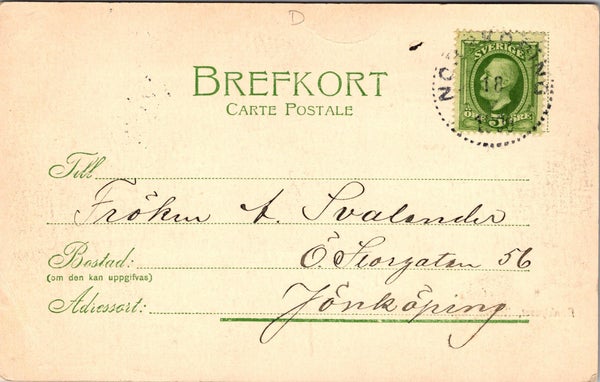 D
BREFKORT
CARTE POSTALE
SVERIGE
18
5 ÖRE
Till
Fröken A. Svalander
Bostad: Ö. Storgatan 56
(om den kan uppgifvas)
Adressort: Jönköping